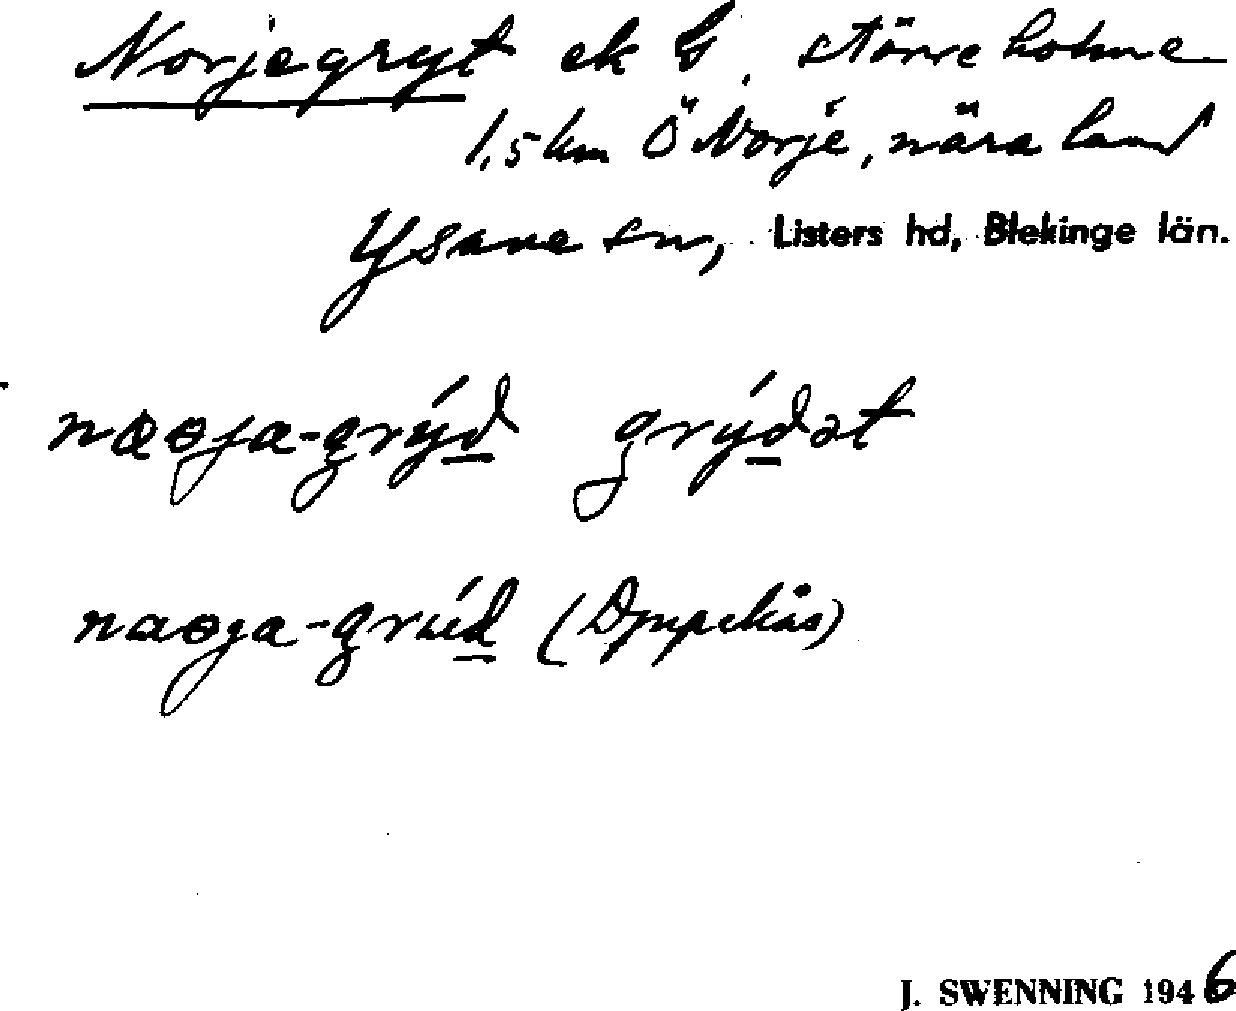 Norjegryt ek G. större holme
1,5 km Ö Norje, nära land
Ysane sn, Listers hd, Blekinge län.
naoja-grýd grýdət
naoja-gruíd (Djupekås)
J. SWENNING 1946